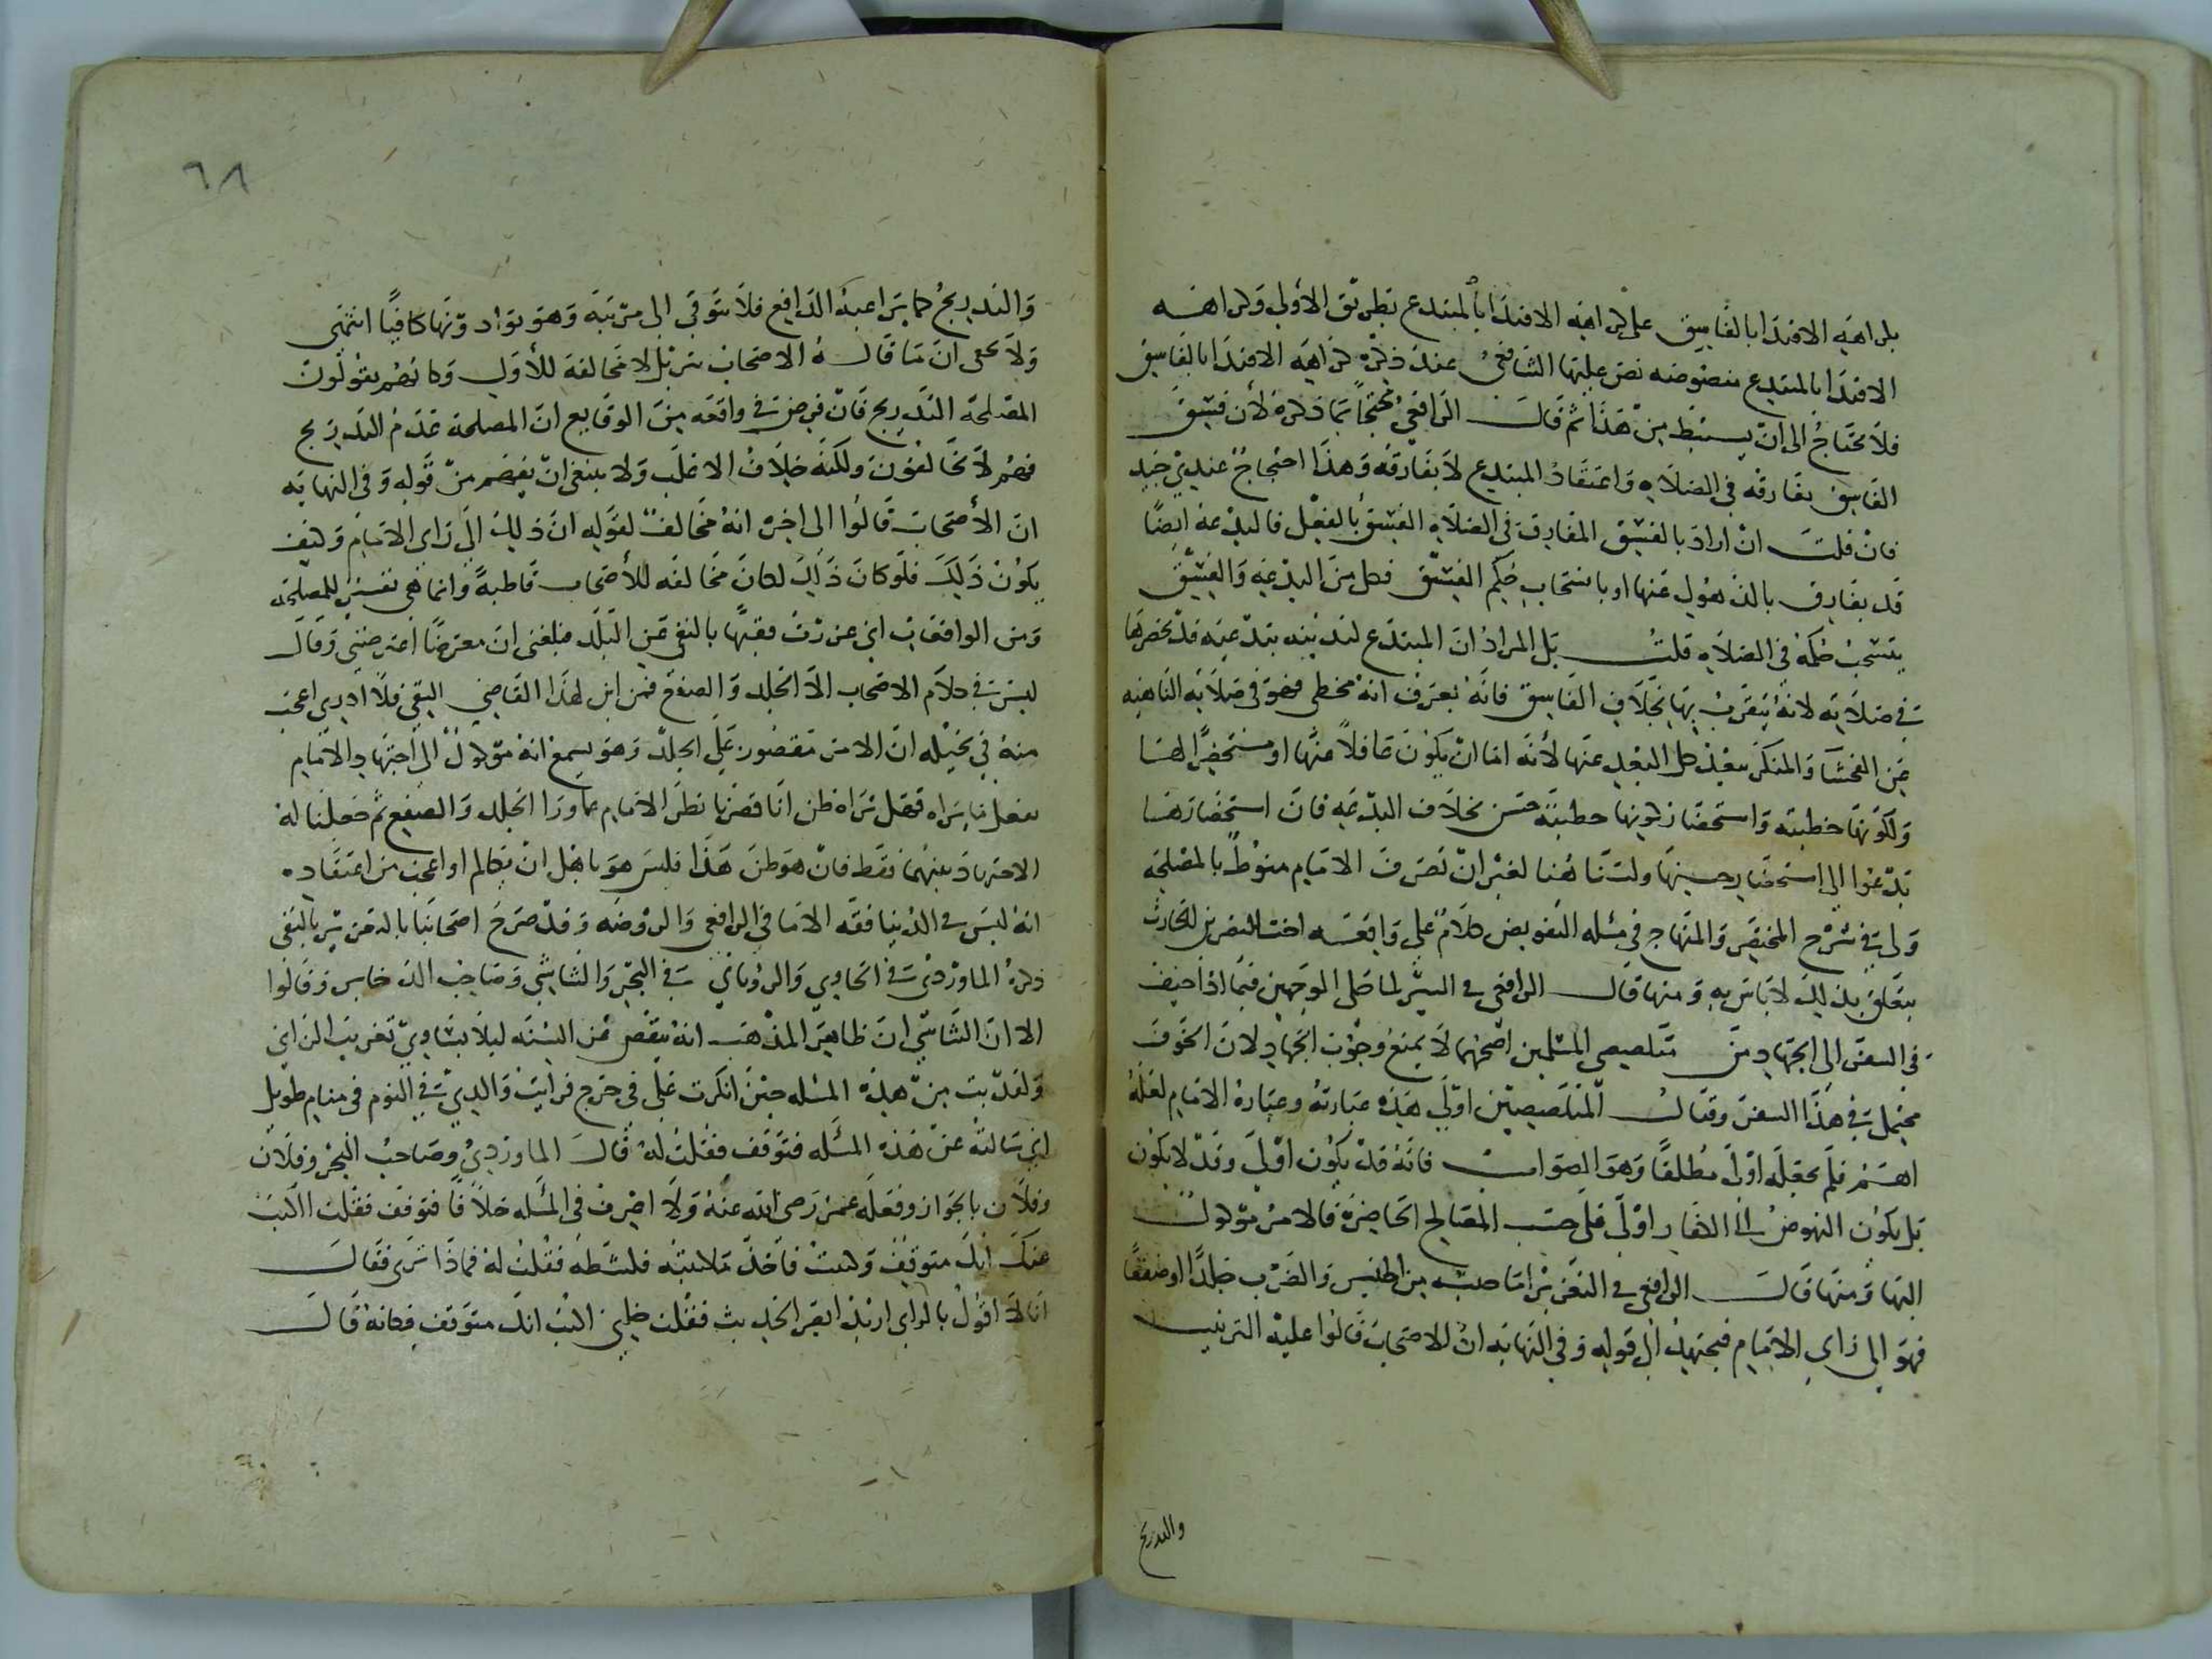 بكراهية الاقتدا بالفاسق على كراهية الاقتدا بالمبتدع بطريق الأولي وكراهة
الاقتدا بالمبتدع منصوصه نص عليها الشافعي عند ذكره كراهية الاقتدا بالفاسق
فلا يحتاج الى ان يستنبط من هذا ثم قال الرافعي محتجا بما ذكره لأن فسق
الفاسق يفارقه في الصلاه واعتقاد المبتدع لا يفارقه وهذا احتجاج عندي جيد
فان قلت ان اراد بالفسق المفارق في الصلاه الفسق بالفعل فالبدعه ايضا
قد يفارق بالذهول عنها او باستصحاب حكم الفسق فكل من البدعه والفسق
يستصحب حكمه في الصلاه قلت بل المراد ان المبتدع لتدينه ببدعته قد يحضرها
في صلاته لانه يتقرب بها بخلاف الفاسق فانه يعترف انه مخطي فهو في صلاته الناهيه
عن الفحشا والمنكر بعيد كل البعد عنها لأنه اما ان يكون غافلا عنها او مستحضرا لها
ولكونها خطيئة واستحضار كونها خطيئة حسن بخلاف البدعه فان استحضارها
يدعوا الي استحضار حسنها ولسنا هنا لغير ان تصرف الامام منوط بالمصلحه
ولي في شرح المختصر والمنهاج في مسله التفويض كلام على واقعه اخت النضر بن الحارث
يتعلق بذلك لا باس به ومنها قال الرافعي في السير لما حكى الوجهين فيما اذا خيف
في السفر الى الجهاد من متلصصي المسلمين اصحهما لا يمنع وجوب الجهاد لان الخوف
محتمل في هذا السفر وقتال المتلصصين اولي هذه عبارته وعبارة الامام لعله
اهم فلم يجعله اولى مطلقا وهو الصواب فانه قد يكون اولي وقد لا يكون
بل يكون النهوض الى الكفار اولى فلى حسب المصالح الحاضرة فالامر موكول
اليها ومنها قال الرافعي في التعزير اما جنسه من الحبس والضرب جلدا او صفعا
فهو الى راي الامام فيجتهد الى قوله وفي النهايه ان الاصحاب قالوا عليه الترتيب
والتدريج
٦٨
والتدريج كما يراعيه الدافع فلا يترقى الى مرتبة وهو يرى ما دونها كافيا انتهى
ولا يخفى ان ما قاله الاصحاب تنزيل لا مخالفة للأول وكانهم يقولون
المصلحة التدريج فان فرض في واقعه من الوقايع ان المصلحة عدم التدريج
فهم لا يخالفون ولكنه خلاف الاغلب ولا ينبغي ان يفهم من قوله وفي النهايه
ان الأصحاب قالوا الى اخره انه مخالف لقوله ان ذلك الى راي الامام وكيف
يكون ذلك فلو كان ذلك لكان مخالفه للأصحاب قاطبة وانما هي تفسير للمصلحة
ومن الواقعات اني عزرت فقيها بالنفي عن البلد فبلغني ان معترضا اعترضني وقال
ليس في كلام الاصحاب الا الجلد والصفع فمن اين لهذا القاضي النفي فلا ادري اعجب
منه في تخيله ان الامر مقصور على الجلد وهو يسمع انه موكول الى اجتهاد الامام
يفعل ما يراه فهل تراه ظن انا قصرنا نظر الامام عما ورا الجلد والصفع ثم جعلنا له
الاجتهاد بينهما فقط فان هو ظن هذا فليس هو باهل ان يكالم او اعجب من اعتقاده
انه ليس في الدنيا فقه الا ما في الرافعي والروضه وقد صرح اصحابنا بالتعزير بالنفي
ذكره الماوردي في الحاوي والروياني في البحر والشاشي وصاحب الذخاير وقالوا
الا ان الشاشي ان ظاهر المذهب انه ينقص عن السنه ليلا يساوي تغريب الزاني
ولقد بت من هذه المسله حين انكرت على في حرج فرايت والدي في النوم في منام طويل
اني سالته عن هذه المسله فتوقف فقلت له قال الماوردي وصاحب البحر وفلان
وفلان بالجواز وفعله عمر رضي الله عنه ولا اعرف في المسله خلافا فتوقف فقلت اكتب
عنك انك متوقف وكتبت فاخذ ما كتبته فكشطه فقلت له فماذا ترى فقال
انا لا اقول بالراي اريد انظر الحديث فقلت خليني اكتب انك متوقف فكانه قال